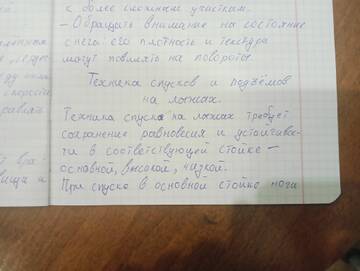 к более сложным участкам.
– Обращать внимание на состояние
снега: его плотность и текстура
могут повлиять на повороты.
Техника спусков и подъёмов
на лыжах.
Техника спуска на лыжах требует
сохранение равновесия и устойчивос-
ти в соответствующей стойке –
основной, высокой, низкой.
При спуске в основной стойке ноги